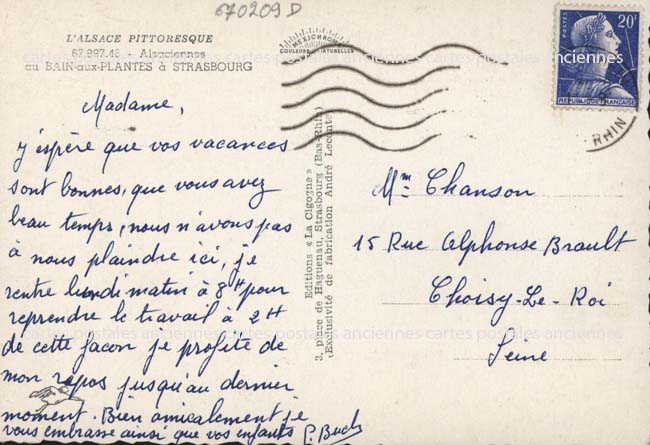 670209 D
L'ALSACE PITTORESQUE
67.997.48 - Alsaciennes
au BAIN-aux-PLANTES à STRASBOURG
MEXICHROME
COULEURS NATURELLES
POSTES
20F
REPUBLIQUE FRANÇAISE
RHIN
Madame,
J'éspère que vos vacances
sont bonnes, que vous avez
beau temps, nous n'avons pas
à nous plaindre ici, je
rentre lundi matin à 8H pour
reprendre le travail à 2H
de cette façon je profite de
mon repos jusqu'au dernier
moment. Bien amicalement je
vous embrasse ainsi que vos enfants
Editions « La Cigogne »
3, place de Haguenau, Strasbourg (Bas-Rhin)
(Exclusivité de fabrication André Leconte)
Mme Chanson
15 Rue Alphonse Brault
Choisy-Le-Roi
Seine
cartes postales anciennes cartes postales anciennes cartes postales anciennes
cartes postales anciennes cartes postales anciennes cartes postales anciennes